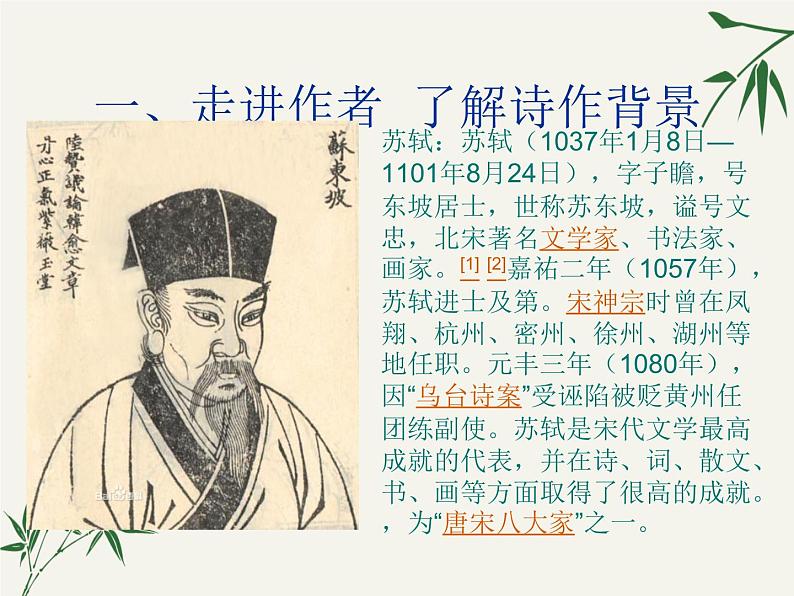 一、走进作者 了解诗作背景
蘇東坡
陸贄議論韓愈文章
丹心正氣紫薇玉堂
Baidu百科
苏轼：苏轼（1037年1月8日—
1101年8月24日），字子瞻，号
东坡居士，世称苏东坡，谥号文
忠，北宋著名文学家、书法家、
画家。[1] [2]嘉祐二年（1057年），
苏轼进士及第。宋神宗时曾在凤
翔、杭州、密州、徐州、湖州等
地任职。元丰三年（1080年），
因“乌台诗案”受诬陷被贬黄州任
团练副使。苏轼是宋代文学最高
成就的代表，并在诗、词、散文、
书、画等方面取得了很高的成就。
，为“唐宋八大家”之一。